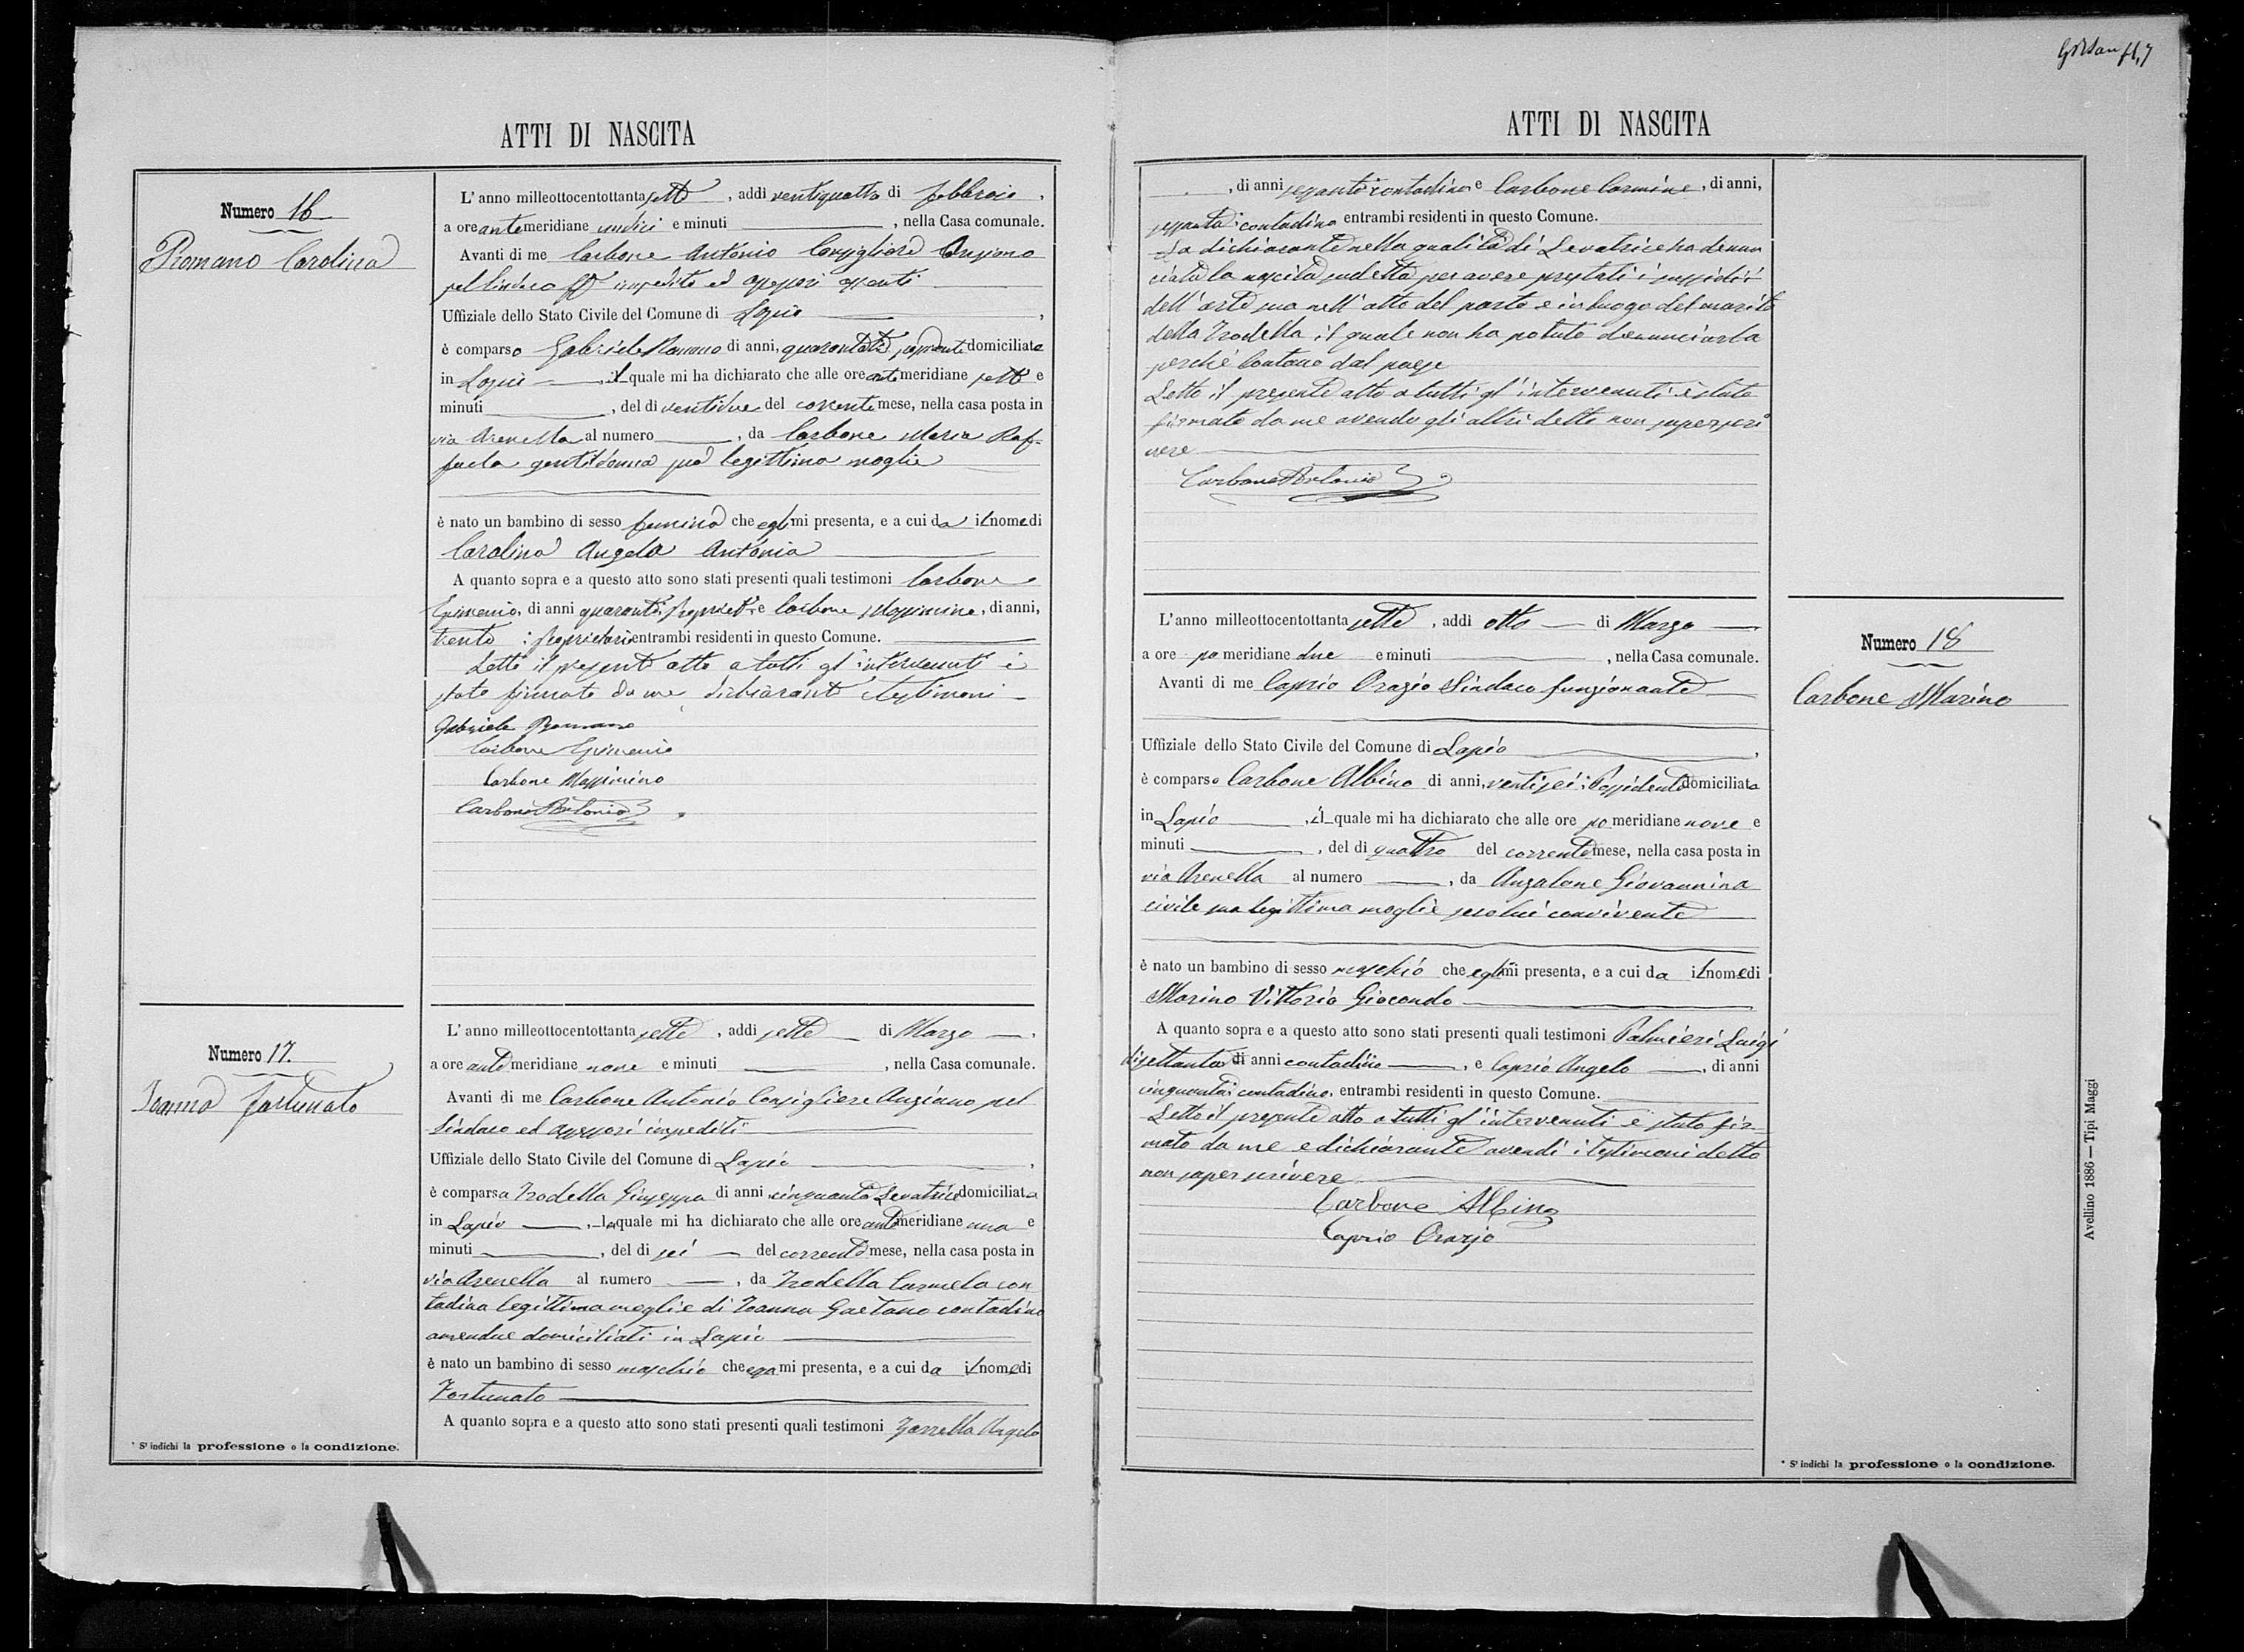 ATTI DI NASCITA
Numero 16
Romano Carolina
L'anno milleottocentottanta sette, addi ventiquattro di febbraio,
a ore antemeridiane undici e minuti , nella Casa comunale.
Avanti di me Carbone Antonio Consigliere Anziano
pel Sindaco impedito ed assessori assenti
Uffiziale dello Stato Civile del Comune di Lapio,
è comparso Gabriele Romano di anni, quarantatre possidente domiciliato
in Lapio, il quale mi ha dichiarato che alle ore antemeridiane sette e
minuti , del di ventidue del corrente mese, nella casa posta in
via Arenella al numero , da Carbone Maria Raf-
faela gentildonna sua legittima moglie
è nato un bambino di sesso feminino che egli mi presenta, e a cui da il nome di
Carolina Angela Antonia
A quanto sopra e a questo atto sono stati presenti quali testimoni Carbone
Epimenio, di anni quaranta, propriet.e e Carbone Massimino, di anni,
trenta : proprietario entrambi residenti in questo Comune.
Letto il presente atto a tutti gl'intervenuti è
stato firmato da me dichiarante e testimoni
Gabriele Romano
Carbone Epimenio
Carbone Massimino
Carbone Antonio
Numero 17.
Ioanna Fortunato
L'anno milleottocentottanta sette, addi sette di Marzo,
a ore antemeridiane nove e minuti , nella Casa comunale.
Avanti di me Carbone Antonio Consigliere Anziano pel
Sindaco ed assessori impediti
Uffiziale dello Stato Civile del Comune di Lapio,
è comparsa Trodella Giuseppa di anni cinquanta Levatrice domiciliata
in Lapio, la quale mi ha dichiarato che alle ore antemeridiane una e
minuti , del di sei del corrente mese, nella casa posta in
via Arenella al numero , da Trodella Carmela con
tadina legittima moglie di Ioanna Gaetano contadino
amendue domiciliati in Lapio
è nato un bambino di sesso maschio che essa mi presenta, e a cui da il nome di
Fortunato
A quanto sopra e a questo atto sono stati presenti quali testimoni Zarrella Angelo
* S'indichi la professione o la condizione.
ATTI DI NASCITA
, di anni sessanta contadino e Carbone Carmine, di anni,
sessanta: contadino entrambi residenti in questo Comune.
La dichiarante nella qualità di Levatrice ha denun
ciato la nascita sudetta per avere prestati i sussidii
dell'arte sua nell'atto del parto e in luogo del marito
della Trodella il quale non ha potuto denunciarla
perché lontano dal paese
Letto il presente atto a tutti gl'intervenuti è stato
firmato da me avendo gli altri detto non saper scri
vere
Carbone Antonio
L'anno milleottocentottanta sette, addi otto di Marzo
a ore pomeridiane due e minuti , nella Casa comunale.
Avanti di me Caprio Orazio Sindaco funzionante
Uffiziale dello Stato Civile del Comune di Lapio,
è comparso Carbone Albino di anni, ventisei: Possidente domiciliato
in Lapio, il quale mi ha dichiarato che alle ore pomeridiane nove e
minuti , del di quattro del corrente mese, nella casa posta in
via Arenella al numero , da Anzalone Giovannina
civile sua legittima moglie seco lui convivente
è nato un bambino di sesso maschio che egli mi presenta, e a cui da il nome di
Marino Vittorio Giocondo
A quanto sopra e a questo atto sono stati presenti quali testimoni Palmieri Luigi
di settanta di anni contadino, e Caprio Angelo, di anni
cinquanta: contadino, entrambi residenti in questo Comune.
Letto il presente atto a tutti gl'intervenuti è stato fir-
mato da me e dichiarante avendi i testimoni detto
non saper scrivere
Carbone Albino
Caprio Orazio
Numero 18
Carbone Marino
Avellino 1886 — Tipi Maggi
* S'indichi la professione o la condizione.